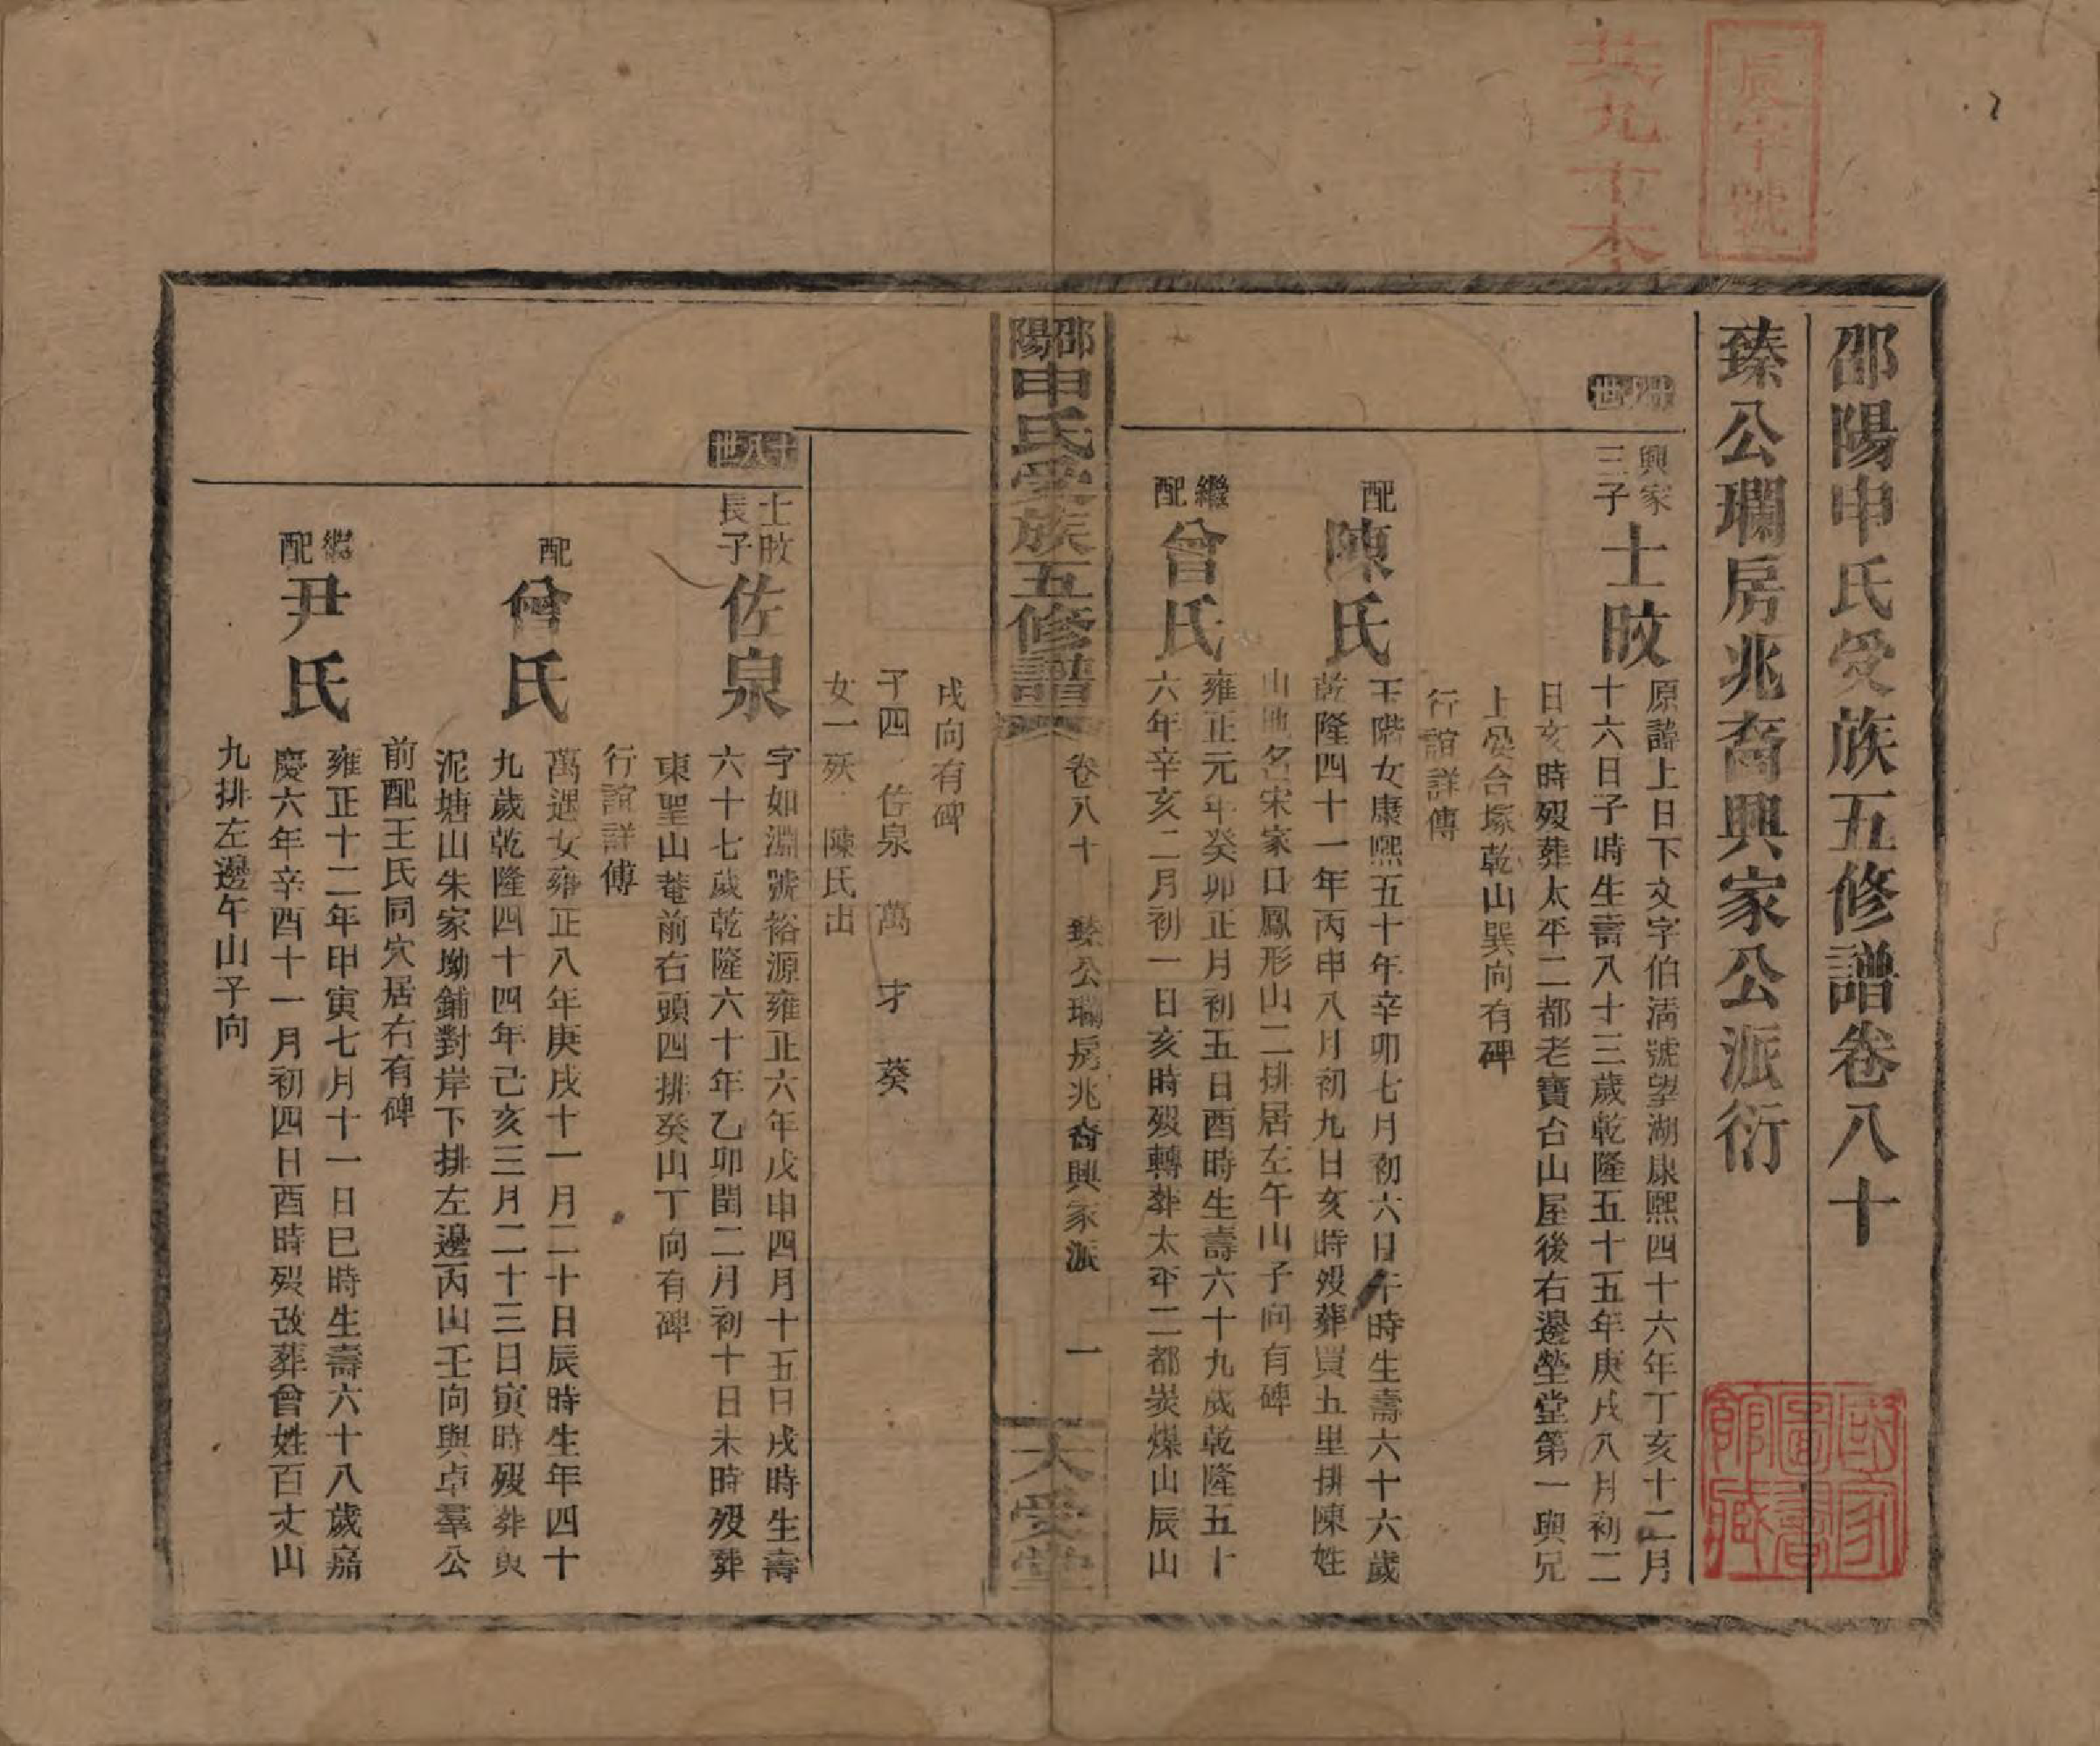 辰字號
共九十本
邵陽申氏受族五修譜卷八十
臻公瓓房兆裔興家公派衍
世
興家
三子
士旼
原諱上日下文字伯淸號望湖康熙四十六年丁亥十二月
十六日子時生壽八十三歲乾隆五十五年庚戌八月初二
日亥時歿葬太平二都老寶台山屋後右邊塋堂第一與兄
上晏台塚乾山巽向有碑
行誼詳傳
配
陳氏
玉階女康熙五十年辛卯七月初六日午時生壽六十六歲
乾隆四十一年丙申八月初九日亥時歿葬買五里排陳姓
山地名宋家口鳳形山二排居左午山子向有碑
繼
配
曾氏
雍正元年癸卯正月初五日酉時生壽六十九歲乾隆五十
六年辛亥二月初一日亥時歿轉葬太平二都炭煤山辰山
邵陽申氏受族五修譜
卷八十
臻公瓓房兆裔興家派
一
大受堂
戌向有碑
子四 佐泉 萬 才 葵
女一 殀 陳氏出
十八世
士旼
長子
佐泉
字如淵號裕源雍正六年戊申四月十五日戌時生壽
六十七歲乾隆六十年乙卯閏二月初十日未時歿葬
東聖山菴前右頭四排癸山丁向有碑
行誼詳傳
配
曾氏
萬遇女雍正八年庚戌十一月二十日辰時生年四十
九歲乾隆四十四年己亥三月二十三日寅時歿葬與
泥塘山朱家坳鋪對岸下排左邊丙山壬向與卓羣公
前配王氏同穴居右有碑
繼
配
尹氏
雍正十二年甲寅七月十一日巳時生壽六十八歲嘉
慶六年辛酉十一月初四日酉時歿改葬曾姓百丈山
九排左邊午山子向
國家圖書館藏